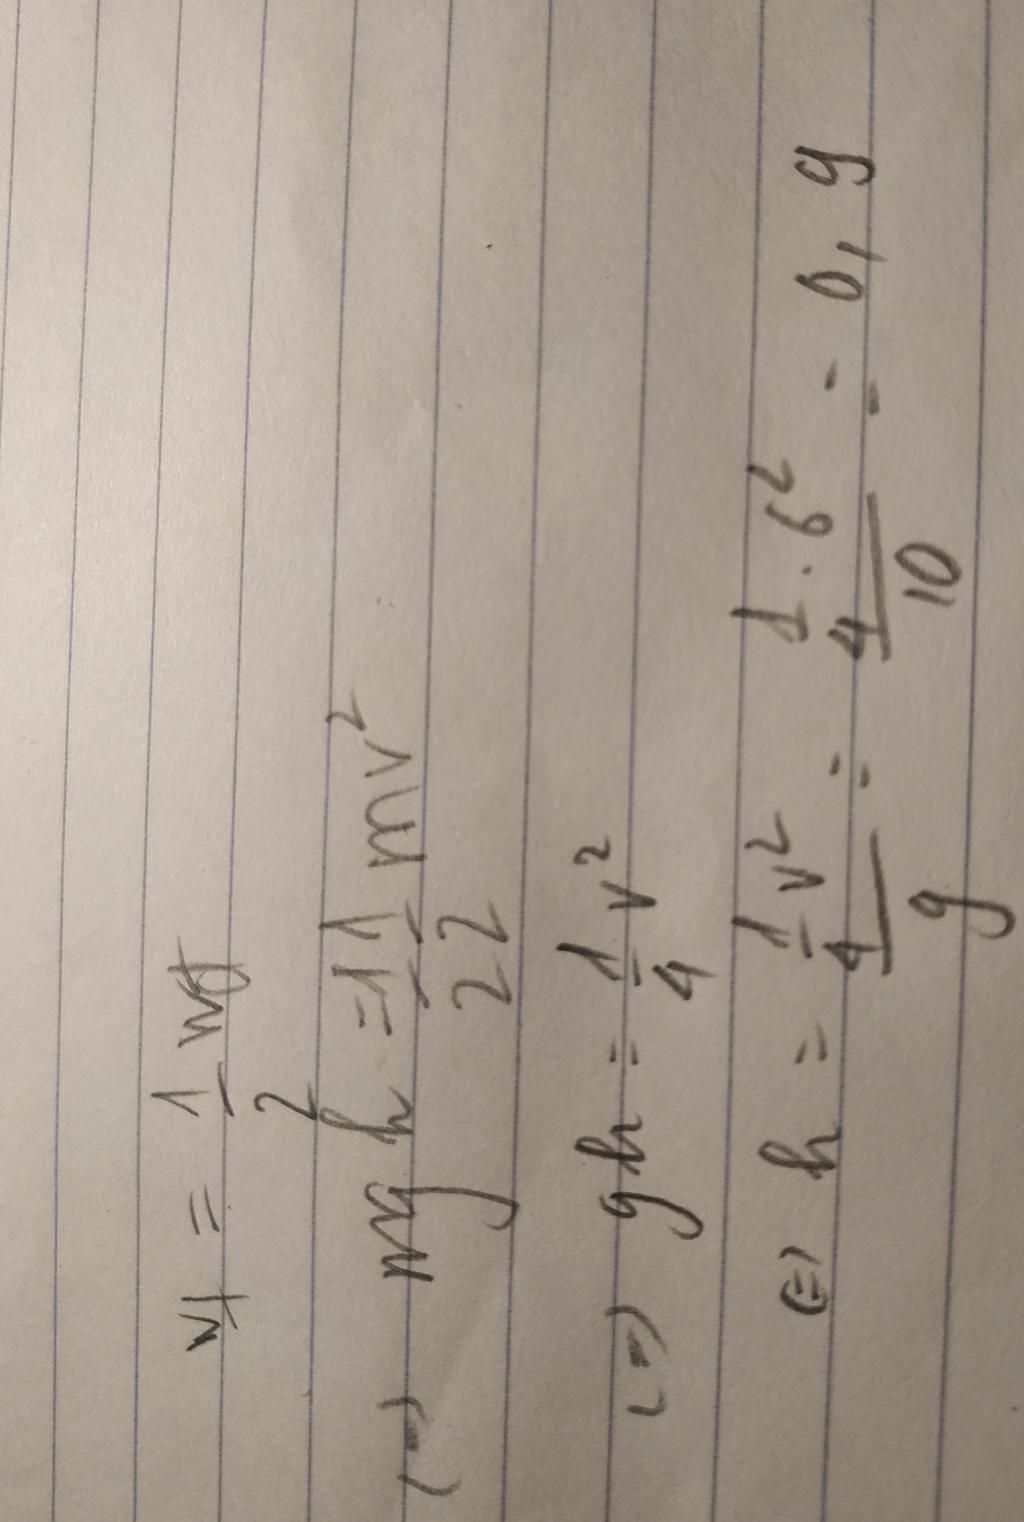 Wt = 1/2 Wđ
(=) mgh = 1/2 1/2 mv²
(=) gh = 1/4 v²
(=) h = (1/4 v²)/g = (1/4 . 6²)/10 = 0,9